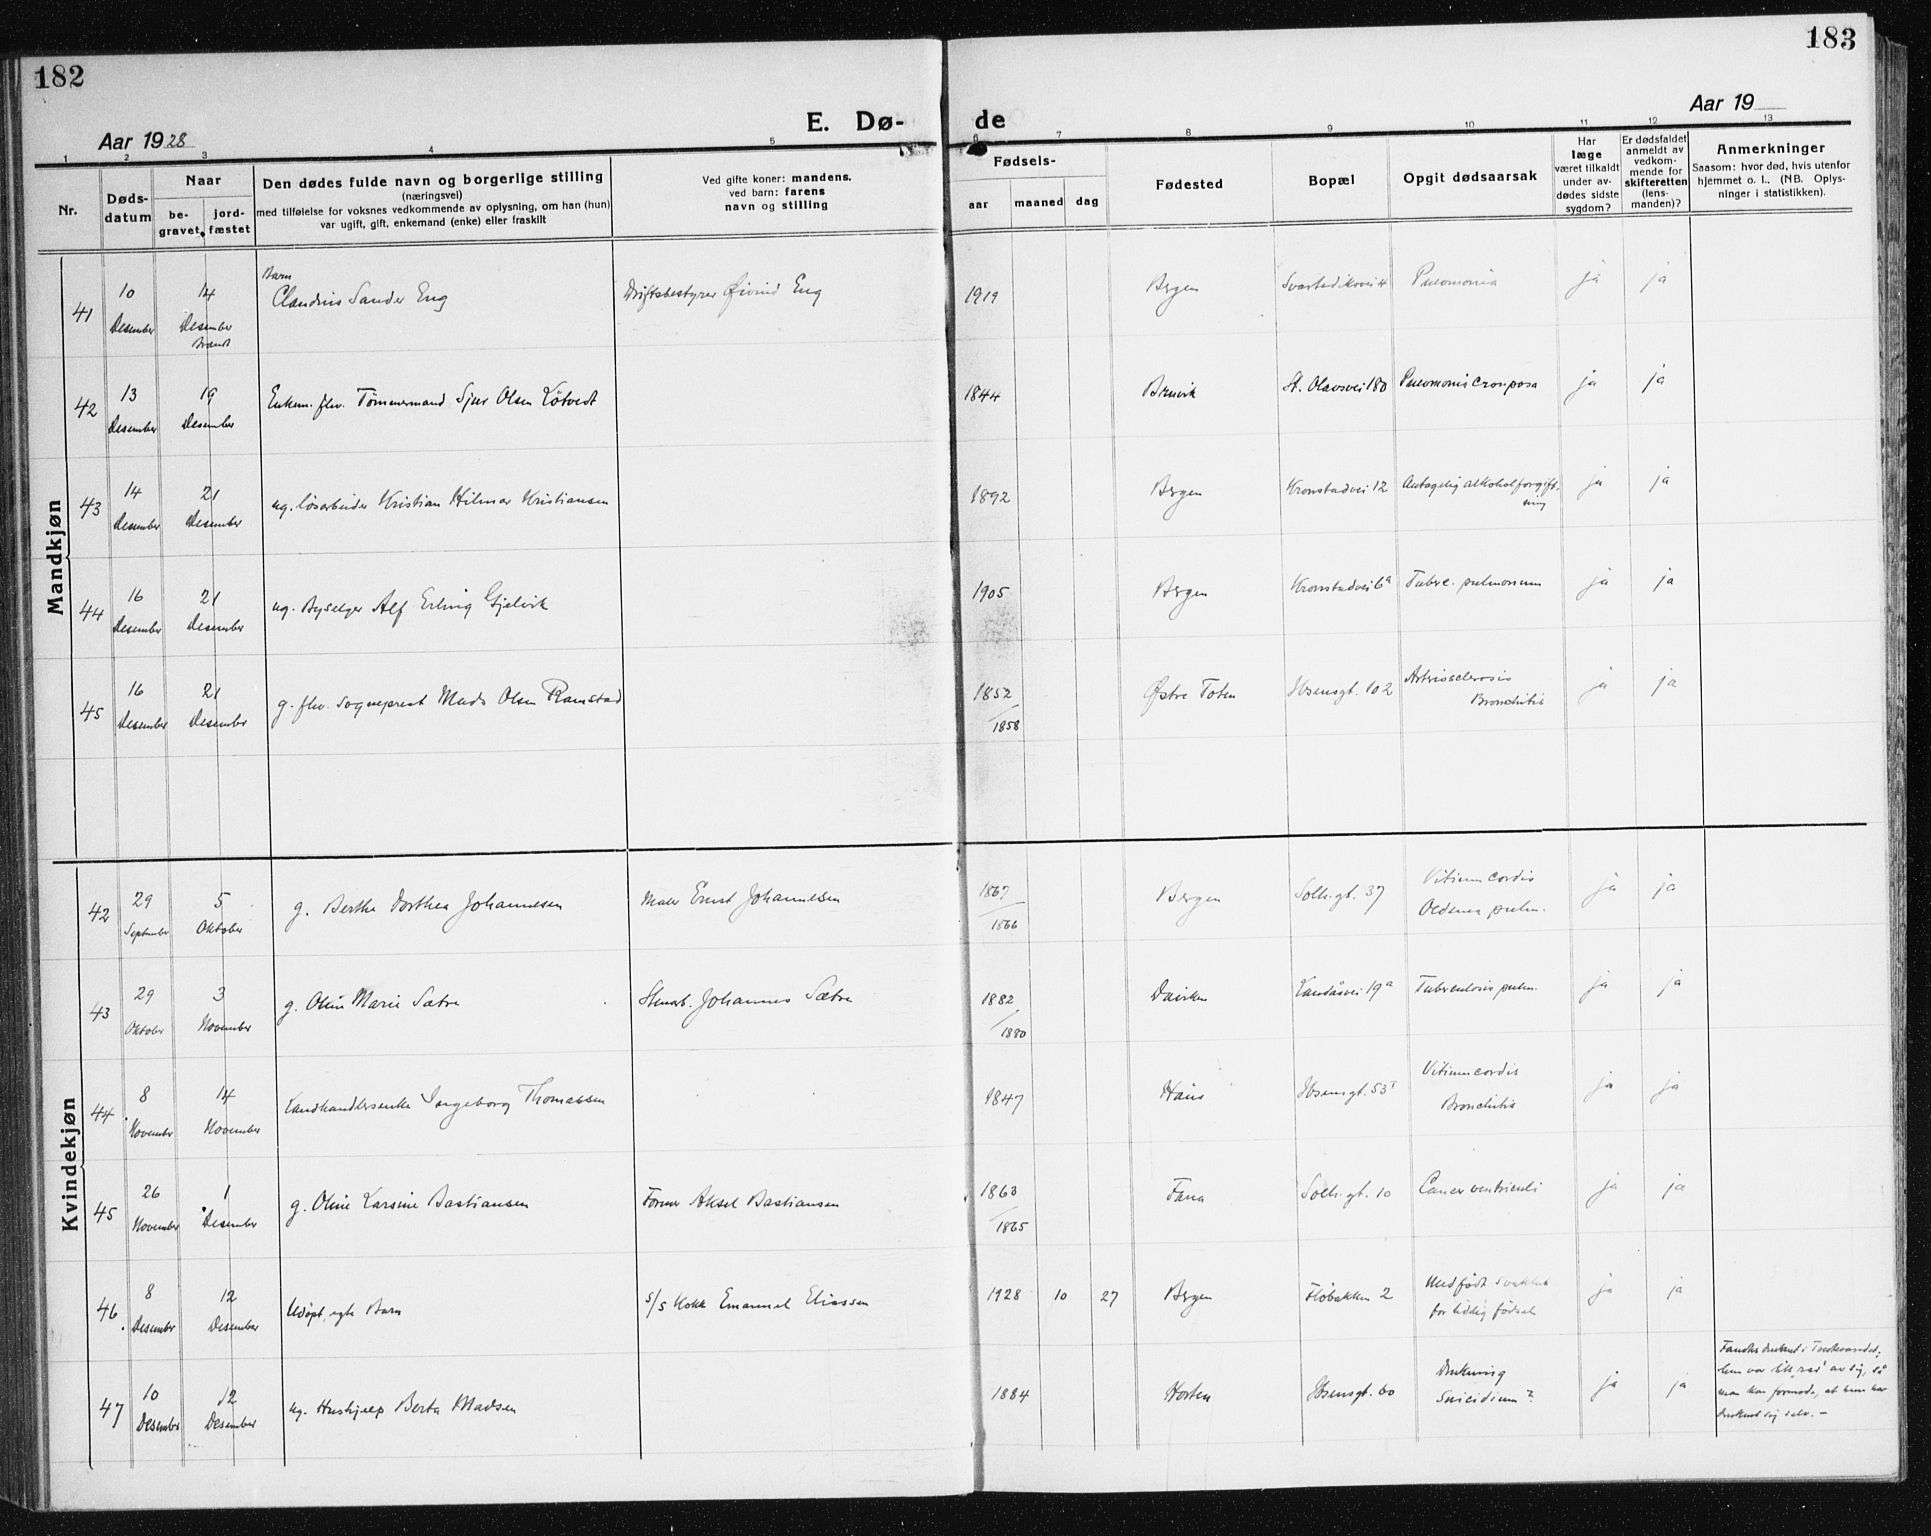 182
183
Aar 1928
E. Dø-
de
Aar 19
1 2 3 4 5 6 7 8 9 10 11 12 13
Nr.
Døds-
datum
Naar
be-
gravet
jord-
fæstet
Den dødes fulde navn og borgerlige stilling
(næringsvei)
med tilføielse for voksnes vedkommende av oplysning, om han (hun)
var ugift, gift, enkemand (enke) eller fraskilt
Ved gifte koner: mandens,
ved barn: farens
navn og stilling
Fødsels-
aar maaned dag
Fødested
Bopæl
Opgit dødsaarsak
Har
læge
været tilkaldt
under av-
dødes sidste
sygdom?
Er dødsfaldet
anmeldt av
vedkom-
mende for
skifteretten
(lens-
manden)?
Anmerkninger
Saasom: hvor død, hvis utenfor
hjemmet o. l., (NB. Oplys-
ninger i statistikken).
Mandkjøn
41 10 Desember 14 Desember
Barn
Claudius Sander Eng Driftsbestyrer Øivind Eng 1919 Bergen Svartediksvei 4 Pneomonia ja ja
42 13 Desember 19 Desember Enkem. fhv. Tømmermand Sjur Olsen Løtvedt 1844 Bruvik St. Olavsvei 180 Pneomonia crouposa ja ja
43 14 Desember 21 Desember ug. løsarbeider Kristian Hilmar Kristiansen 1892 Bergen Kronstadvei 12 Antagelig alkoholforgift-
ning ja ja
44 16 Desember 21 Desember ug. Byselger Alf Erling Gjelvik 1905 Bergen Kronstadvei 6a Tuberc. pulmonum ja ja
45 16 Desember 21 Desember g. fhv. Sogneprest Mads Olsen Ramstad 1852/1858 Østre Toten Ibsensgt. 102 Artriosclerosis
Bronchitis ja ja
Kvindekjøn
42 29 September 5 Oktober g. Berthe Dorthea Johannesen Maler Ernst Johannesen 1867/1866 Bergen Solh.gt. 37 Vitium cordis
Oedema pulm. ja ja
43 29 Oktober 3 November g. Oline Marie Sætre Stenarb. Johannes Sætre 1882/1880 Daviken Landåsvei 19a Tuberculosis pulm. ja ja
44 8 November 14 November Landhandlerenke Ingeborg Thomassen 1847 Haus Ibsensgt. 53 I Vitium cordis
Bronchitis ja ja
45 26 November 1 Desember g. Oline Larsine Bastiansen Former Aksel Bastiansen 1863/1865 Fana Solh.gt. 10 Cancer ventriculi ja ja
46 8 Desember 12 Desember Udøpt, egte Barn S/S Kokk Emanuel Eliassen 1928 10 27 Bergen Fløbakken 2 Medfødt svakhet
for tidlig fødsel ja ja
47 10 Desember 12 Desember ug. Hushjelp Berta Madsen 1884 Horten Ibsensgt. 60 Drukning
Suicidium? ja ja
Fandtes druknet i Tveitevandet;
hun var litt "rar" av sig, så
man kan formode, at hun har
druknet sig selv. –